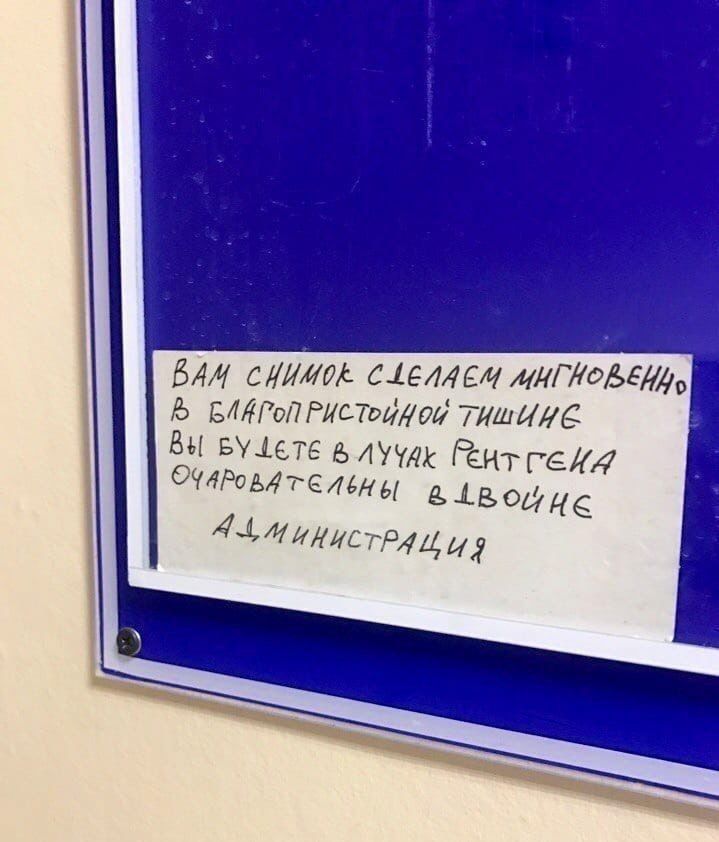 ВАМ СНИМОК СДЕЛАЕМ МНГНОВЕННО
В БЛАГОПРИСТОЙНОЙ ТИШИНЕ
ВЫ БУДЕТЕ В ЛУЧАХ РЕНТГЕНА
ОЧАРОВАТЕЛЬНЫ ВДВОЙНЕ
АДМИНИСТРАЦИЯ